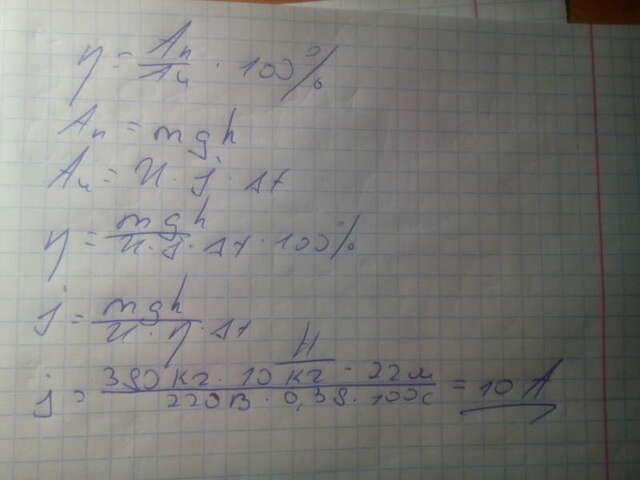 η = Aп / Aч · 100%
Aп = mgh
Aч = U · J · Δt
η = mgh / U · J · Δt · 100%
J = mgh / U · η · Δt
J = 380 кг · 10 Н/кг · 22 м / 220 В · 0,38 · 100 с = 10 А